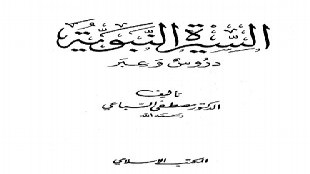 السيرة النبوية
دروس وعبر
تأليف
الدكتور مصطفى السباعي
رحمه الله
المكتب الإسلامي